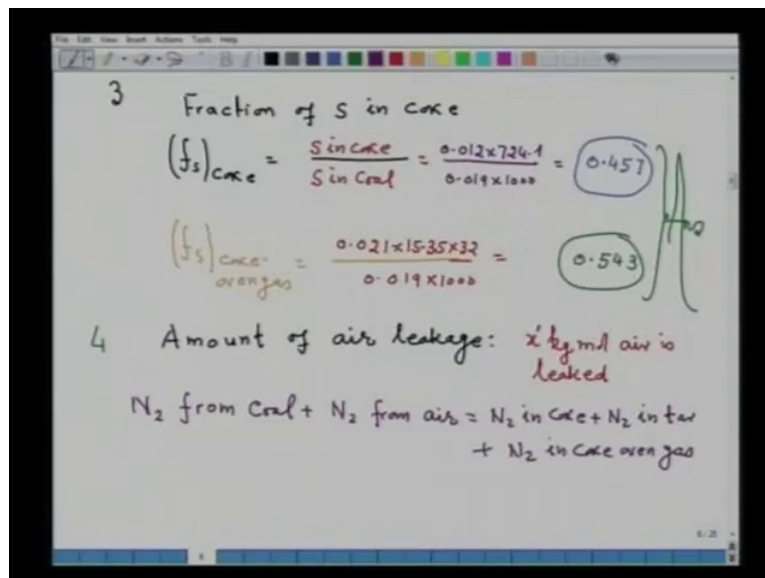 File Edit View Insert Actions Tools Help
3 Fraction of S in coke
(fs)coke = S in coke / S in Coal = 0.012×724.1 / 0.019×1000 = 0.457
(fs)coke- oven gas = 0.021×15.35×32 / 0.019×1000 = 0.543
4 Amount of air leakage: x' kg mol air is
leaked
N2 from Coal + N2 from air = N2 in coke + N2 in tar
+ N2 in coke oven gas